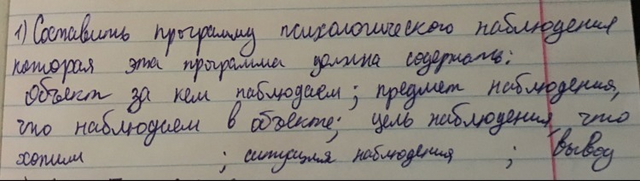 1) Составить программу психологического наблюдения
которая эта программа должна содержать:
Объект за кем наблюдаем; предмет наблюдения,
что наблюдаем в объекте; цель наблюдения, что
хотим ; ситуация наблюдения ; вывод